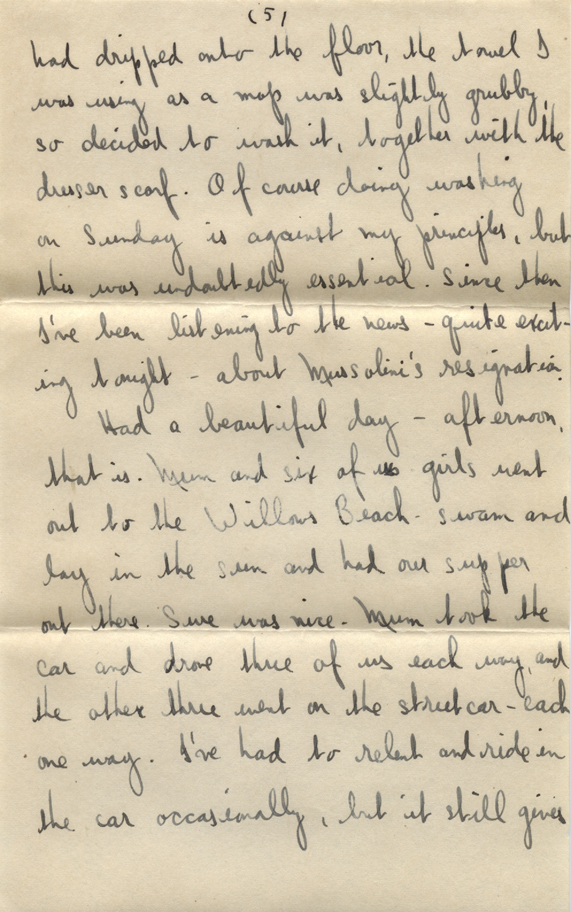 (5)
had dripped onto the floor, the towel I
was using as a mop was slightly grubby,
so decided to wash it, together with the
dresser scarf. Of course doing washing
on Sunday is against my principles, but
this was undoubtedly essential. Since then
I've been listening to the news - quite excit-
ing tonight - about Mussolini's resignation.
Had a beautiful day - afternoon,
that is. Mum and six of us girls went
out to the Willows Beach - swam and
lay in the sun and had our supper
out there. Sure was nice. Mum took the
car and drove three of us each way, and
the other three went on the streetcar - each
one way. I've had to relent and ride in
the car occasionally, but it still gives